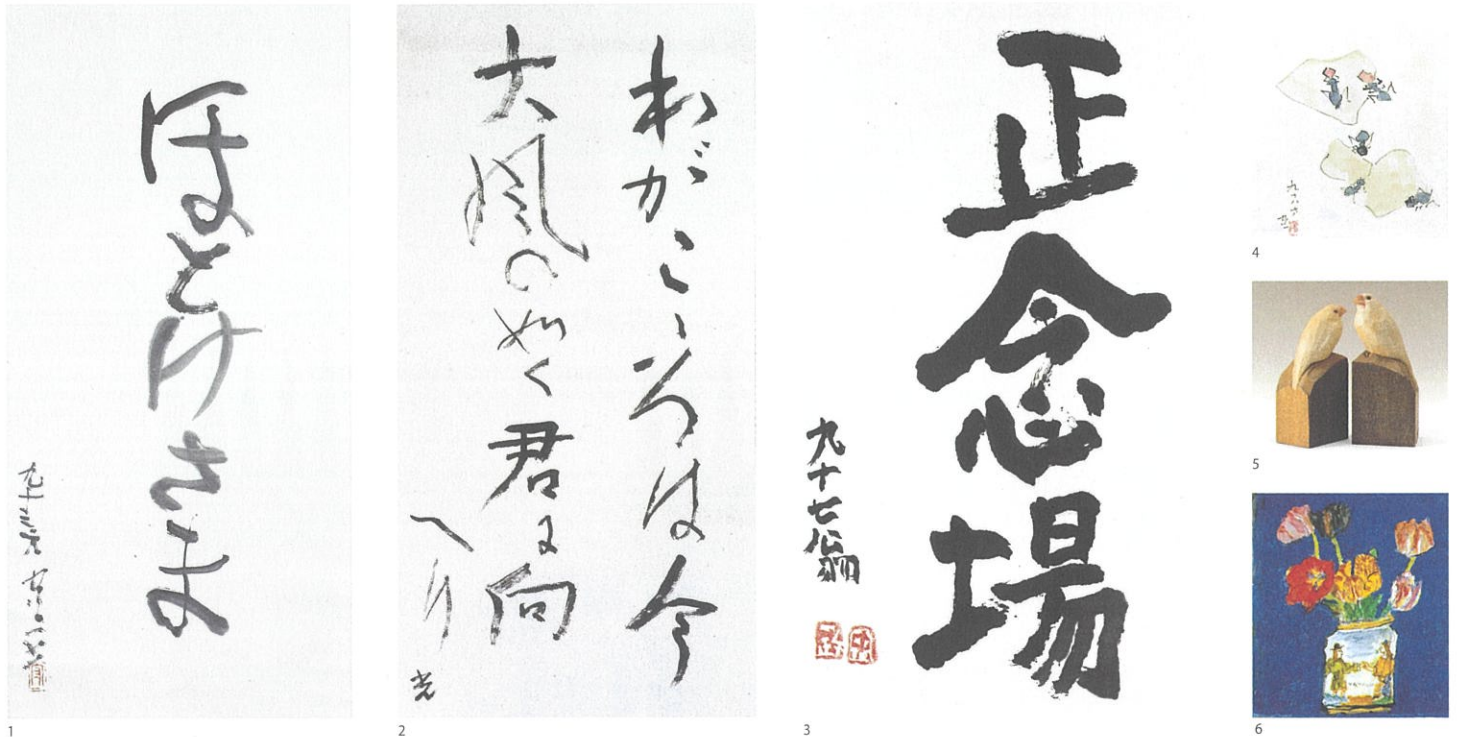 ほとけさま
九十三六
1
わがこころは今
大風の如く君に向
へり
光
2
正念場
九十七翁
3
4
5
6